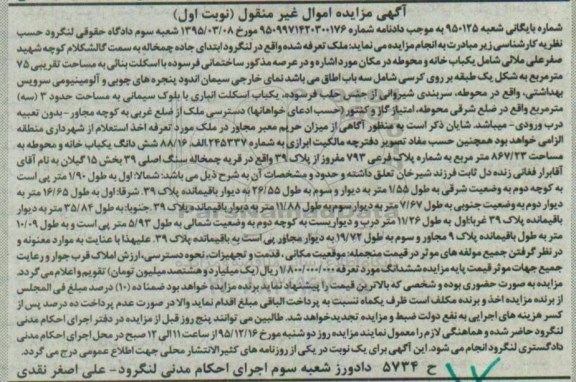 آگهی مزایده اموال غیر منقول (نوبت اول)
شماره بایگانی شعبه ۹۵۰۱۲۵ به موجب دادنامه شماره ۹۵۰۹۹۷۱۴۲۰۳۰۰۱۷۶ مورخ ۱۳۹۵/۰۳/۰۸ شعبه سوم دادگاه حقوقی لنگرود حسب
نظریه کارشناسی زیر مبادرت به انجام مزایده می نماید: ملک تعرفه شده واقع در لنگرود ابتدای جاده چمخاله به سمت گالشکلام کوچه شهید
صفر علی ملائی شامل یکباب خانه و محوطه در مکان مورد اشاره و در عرصه مذکور ساختمانی فرسوده با اسکلت بنائی به مساحت تقریبی ۷۵
مترمربع به شکل یک طبقه بر روی کرسی شامل سه باب اطاق می باشد نمای خارجی سیمان اندود پنجره های چوبی و آلومینیومی سرویس
بهداشتی، واقع در محوطه، سربندی شیروانی از جنس حلب فرسوده، یکباب اسکلت انباری با بلوک سیمانی به مساحت حدود ۳ (سه)
مترمربع واقع در ضلع شرقی محوطه، امتیاز گاز و کنتور (حسب ادعای خواهانها) دسترسی ملک از ضلع غربی به کوچه مجاور - بدون تعبیه
درب ورودی - میباشد. شایان ذکر است به منظور آگاهی از میزان حریم معبر مجاور در ملک مورد تعرفه اخذ استعلام از شهرداری منطقه
الزامی خواهد بود همچنین حسب مفاد تصویر دفترچه مالکیت ابرازی به شماره ۲۴۵۳۳۷ الف ۸۸/۱۶ شش دانگ یکباب خانه و محوطه به
مساحت ۸۶۷/۲۳ متر مربع به شماره پلاک فرعی ۷۹۳ مفروز از پلاک ۳۹ واقع در قریه چمخاله سنگ اصلی ۳۹ بخش ۱۵ گیلان به نام آقای
آقابرار فغانی زنده دل ثابت فرزند شیرخان تعلق داشته و حدود و مشخصات آن به شرح ذیل می باشد: شمالا: اول به طول ۱/۹۰ متر پی است
به کوچه دوم به وضعیت شرقی به طول ۱/۵۵ متر به دیوار و سوم به طول ۲۶/۵۵ به دیوار باقیمانده پلاک ۳۹. شرقا: اول به طول ۱۶/۶۵ متر به
دیوار دوم به وضعیت جنوبی به طول ۷/۶۷ متر به دیوار سوم به طول ۱۱/۸۸ متر به دیوار باقیمانده پلاک ۳۹. جنوبا: به طول ۳۵/۸۴ متر به دیوار
باقیمانده پلاک ۳۹ غربا: اول به طول ۱۱/۲۶ متر درب و دیواریست به کوچه دوم به وضعیت شمالی به طول ۵/۹۳ متر پی است و به طول ۱۰/۰۹
متر به طول باقیمانده پلاک ۹ مجاور و سوم به طول ۱۹/۷۲ به دیوار مجاور پی است به باقیمانده پلاک ۳۹. علیهذا با عنایت به موارد معنونه و
در نظر گرفتن جمیع مولفه های موثر در قیمت منجمله: موقعیت مکانی، قدمت و تجهیزات، نحوه دسترسی، ارزش املاک قرب جوار و رعایت
جمیع جهات موثر قیمت پایه مزایده ششدانگ مورد تعرفه ۱/۸۰۰/۰۰۰/۰۰۰ ریال (یک میلیارد و هشتصد میلیون تومان) تقویم و اعلام می گردد.
مزایده به صورت حضوری بوده و شخصی که بالاترین قیمت را پیشنهاد نماید برنده مزایده خواهد بود ضمنا ده (۱۰) درصد مبلغ فی المجلس
از برنده مزایده اخذ و برنده مکلف است ظرف یکماه نسبت به پرداخت الباقی مبلغ اقدام نماید والا در صورت عدم پرداخت ده درصد پس از
کسر هزینه های اجرایی به نفع دولت ضبط و مزایده تجدید خواهد شد. طالبین می توانند پنج روز قبل از مزایده در دفتر اجرای احکام مدنی
لنگرود حاضر شده و هماهنگی لازم را معمول نمایند مزایده روز دوشنبه مورخ ۹۵/۱۲/۱۶ از ساعت ۱۱ الی ۱۲ صبح در محل اجرای احکام مدنی
دادگستری لنگرود انجام می شود. این آگهی برای یک نوبت در یکی از روزنامه های کثیرالانتشار محلی جهت اطلاع عمومی درج می گردد.
ح ۵۷۳۴ دادورز شعبه سوم اجرای احکام مدنی لنگرود - علی اصغر نقدی